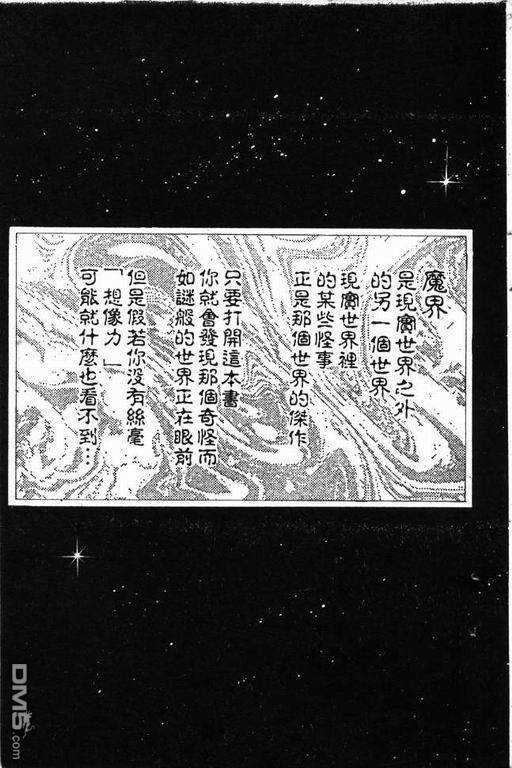 魔界
是現實世界之外
的另一個世界
現實世界裡
的某些怪事
正是那個世界的傑作
只要打開這本書
你就會發現那個奇怪而
如謎般的世界正在眼前
但是假若你沒有絲毫
「想像力」
可能就什麼也看不到…
DM5.com